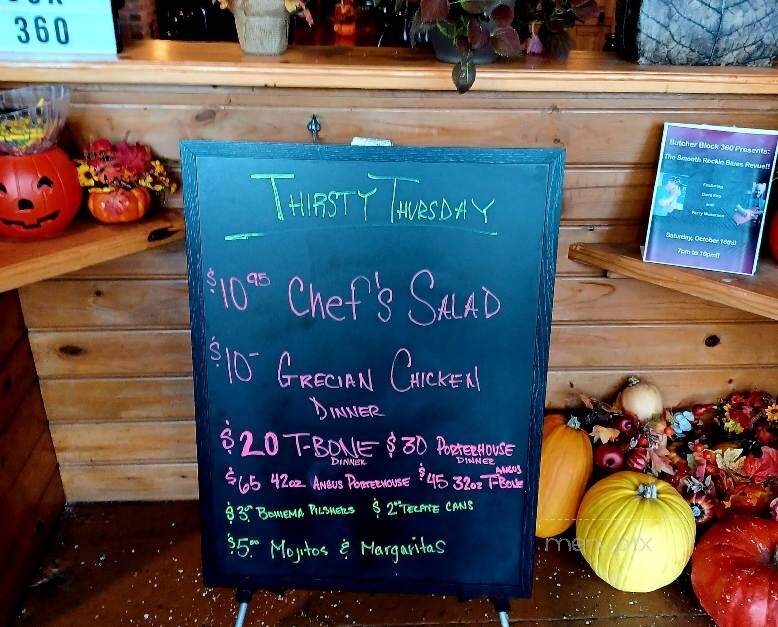 360
THIRSTY THURSDAY
$10⁹⁵ Chef's SALAD
$10- GRECIAN CHICKEN
DINNER
$20 T-BONE DINNER $30 PORTERHOUSE DINNER
$65 42oz ANGUS PORTERHOUSE $45 32oz ANGUS T-BONE
$3.⁰⁰ BOHEMIA PILSNERS $2⁰⁰ TECATE CANS
$5.⁰⁰ Mojitos & Margaritas
Butcher Block 360 Presents:
The Smooth Rockin Blues Revue!!
Featuring
and
Saturday, October 16th!!
7pm to 10pm!!
menupix